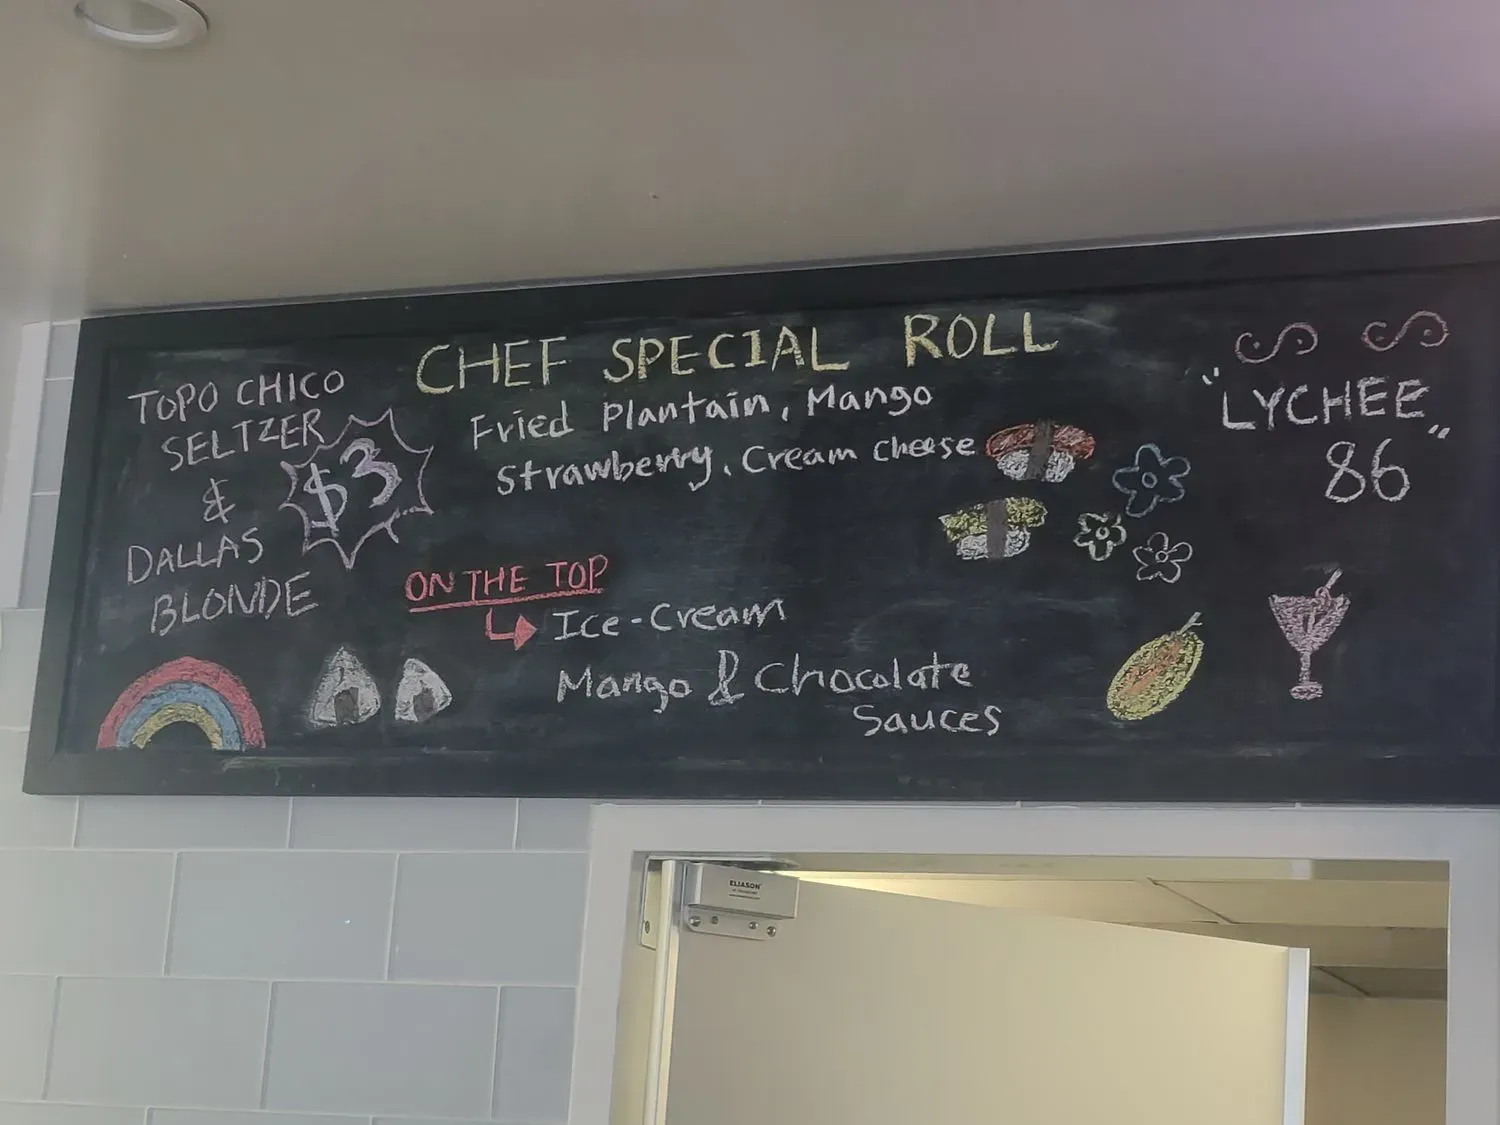 TOPO CHICO
SELTZER
$3
&
DALLAS
BLONDE
CHEF SPECIAL ROLL
Fried Plantain, Mango
Strawberry, Cream cheese
ON THE TOP
Ice-Cream
Mango & Chocolate
Sauces
"LYCHEE"
86
ELIASON